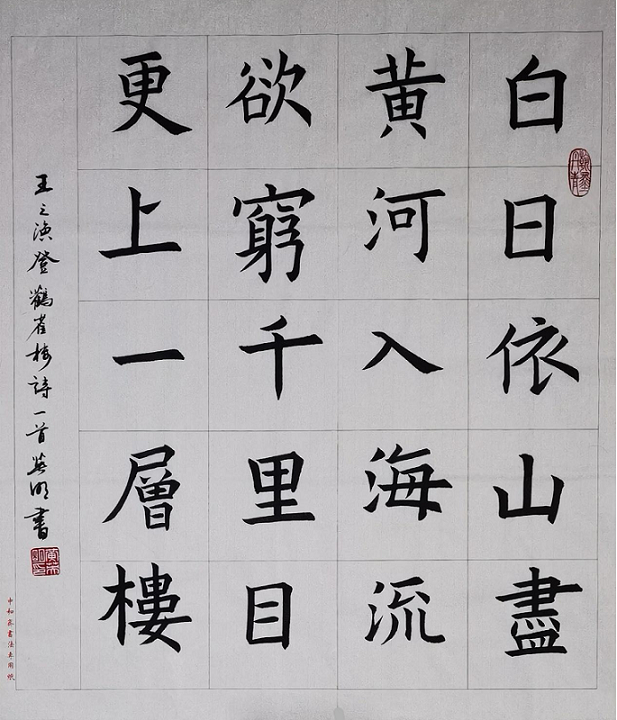 白日依山盡
黄河入海流
欲窮千里目
更上一層樓
王之渙登鸛雀樓詩一首英明書
中和齋書法專用紙